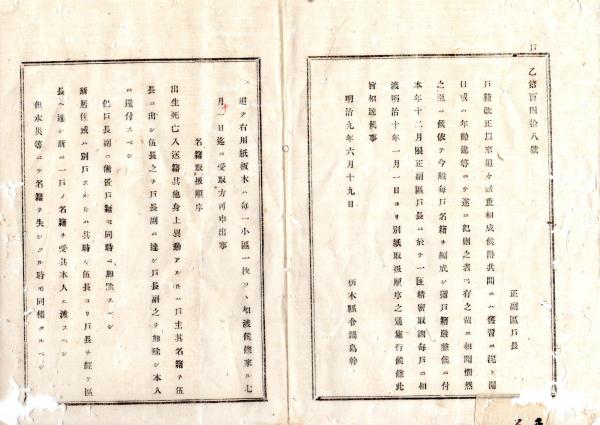 戸
乙第百四拾八號
正副區戸長
戸籍改正以來追々鄭重相成候得共間ニハ舊習ニ泥ミ漏
口或ハ年齡違等ニテ遂ニ犯則之者モ有之哉ニ相聞惘然
之至ニ候依テ今般毎戸名籍ヲ編成シ彌戸籍嚴整候ニ付
本年十二月限正副區戸長ニ於テ一區精密取調毎戸ニ相
渡明治十年一月一日ヨリ別紙取扱順序之通施行候條此
旨相達候事
明治九年六月十九日
栃木縣令鍋島幹
追テ右用紙板木ハ毎一小區一枚ツヽ相渡候條來ル七
月十一日迄ニ受取方可申出事
名籍取扱順序
出生死亡入送籍其他身上異動アルトキハ戸主其名籍ヲ伍
長ニ出シ伍長之ヲ戸長副ニ達シ戸長副之ヲ加除シ本人
ニ還付スベシ
但戸長副ニ備置戸籍モ同時ニ加除スベシ
新居住或ハ別戸スルトキハ其時々伍長ヨリ戸長ヲ經テ區
長ヘ達シ新ニ一戸ノ名籍ヲ受其本人ニ渡スベシ
但水災等ニテ名籍ヲ失シタル時モ同樣タルベシ